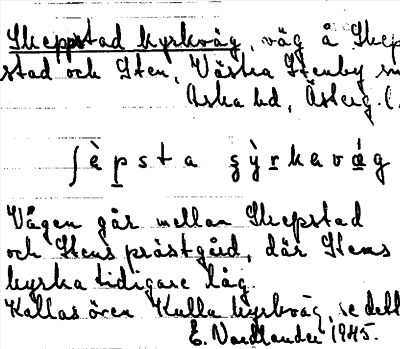 Skeppstad kyrkväg, väg å Skep
stad och Sten, Västra Stenby sn
Aska hd, Österg. (
ʃ è p s t a ȿ ỳ r k a v ǽ g
Vägen går mellan Skepstad
och Stens prästgård, där Stens
kyrka tidigare låg.
Kallas även Kulla kyrkväg, se detta
E. Nordlander 1945.